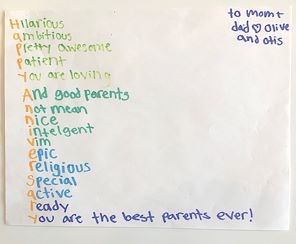 Hilarious
ambitious
Pretty awesome
Patient
You are loving
And good parents
not mean
nice
intelgent
vim
epic
religious
Special
active
ready
you are the best parents ever!
to mom+
dad ♡ Olive
and otis